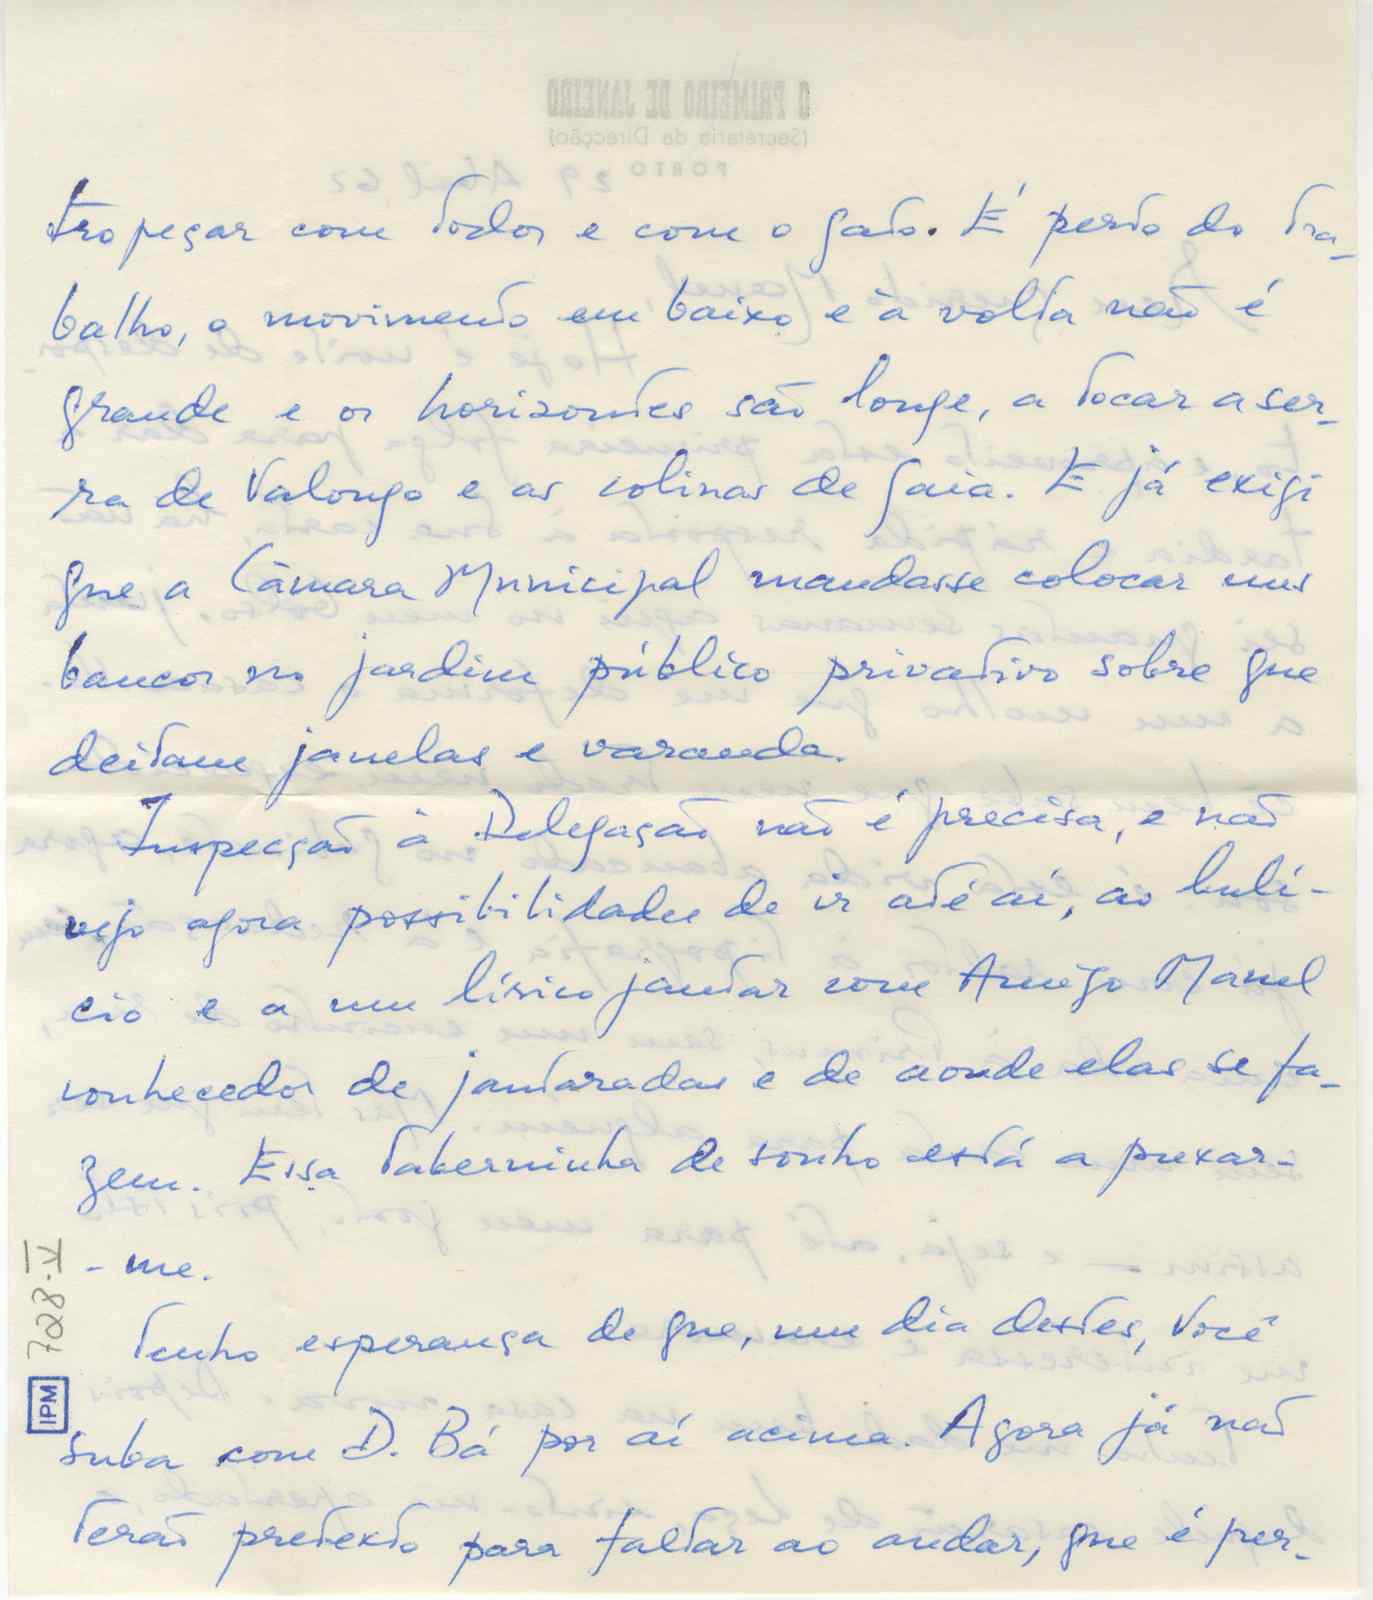 tropeçar com todos e com o gato. É perto do tra-
balho, o movimento em baixo e à volta não é
grande e os horizontes são longe, a tocar a ser-
ra de Valongo e as colinas de Gaia. E já exigi
que a Câmara Municipal mandasse colocar uns
bancos no jardim público privativo sobre que
deitam janelas e varanda.
Inspecção à Delegação não é precisa, e não
vejo agora possibilidades de ir até aí, ao bulí-
cio e a um lírico jantar com Amigo Manel
conhecedor de jantaradas e de aonde elas se fa-
zem. Essa taberninha de sonho está a puxar-
-me.
Tenho esperança de que, um dia destes, Você
suba com D. Bá por aí acima. Agora já não
terão pretexto para faltar ao andar, que é per-
728-V
IPM
O PRIMEIRO DE JANEIRO
(Secretaria da Direcção)
PORTO
29 Abril 62